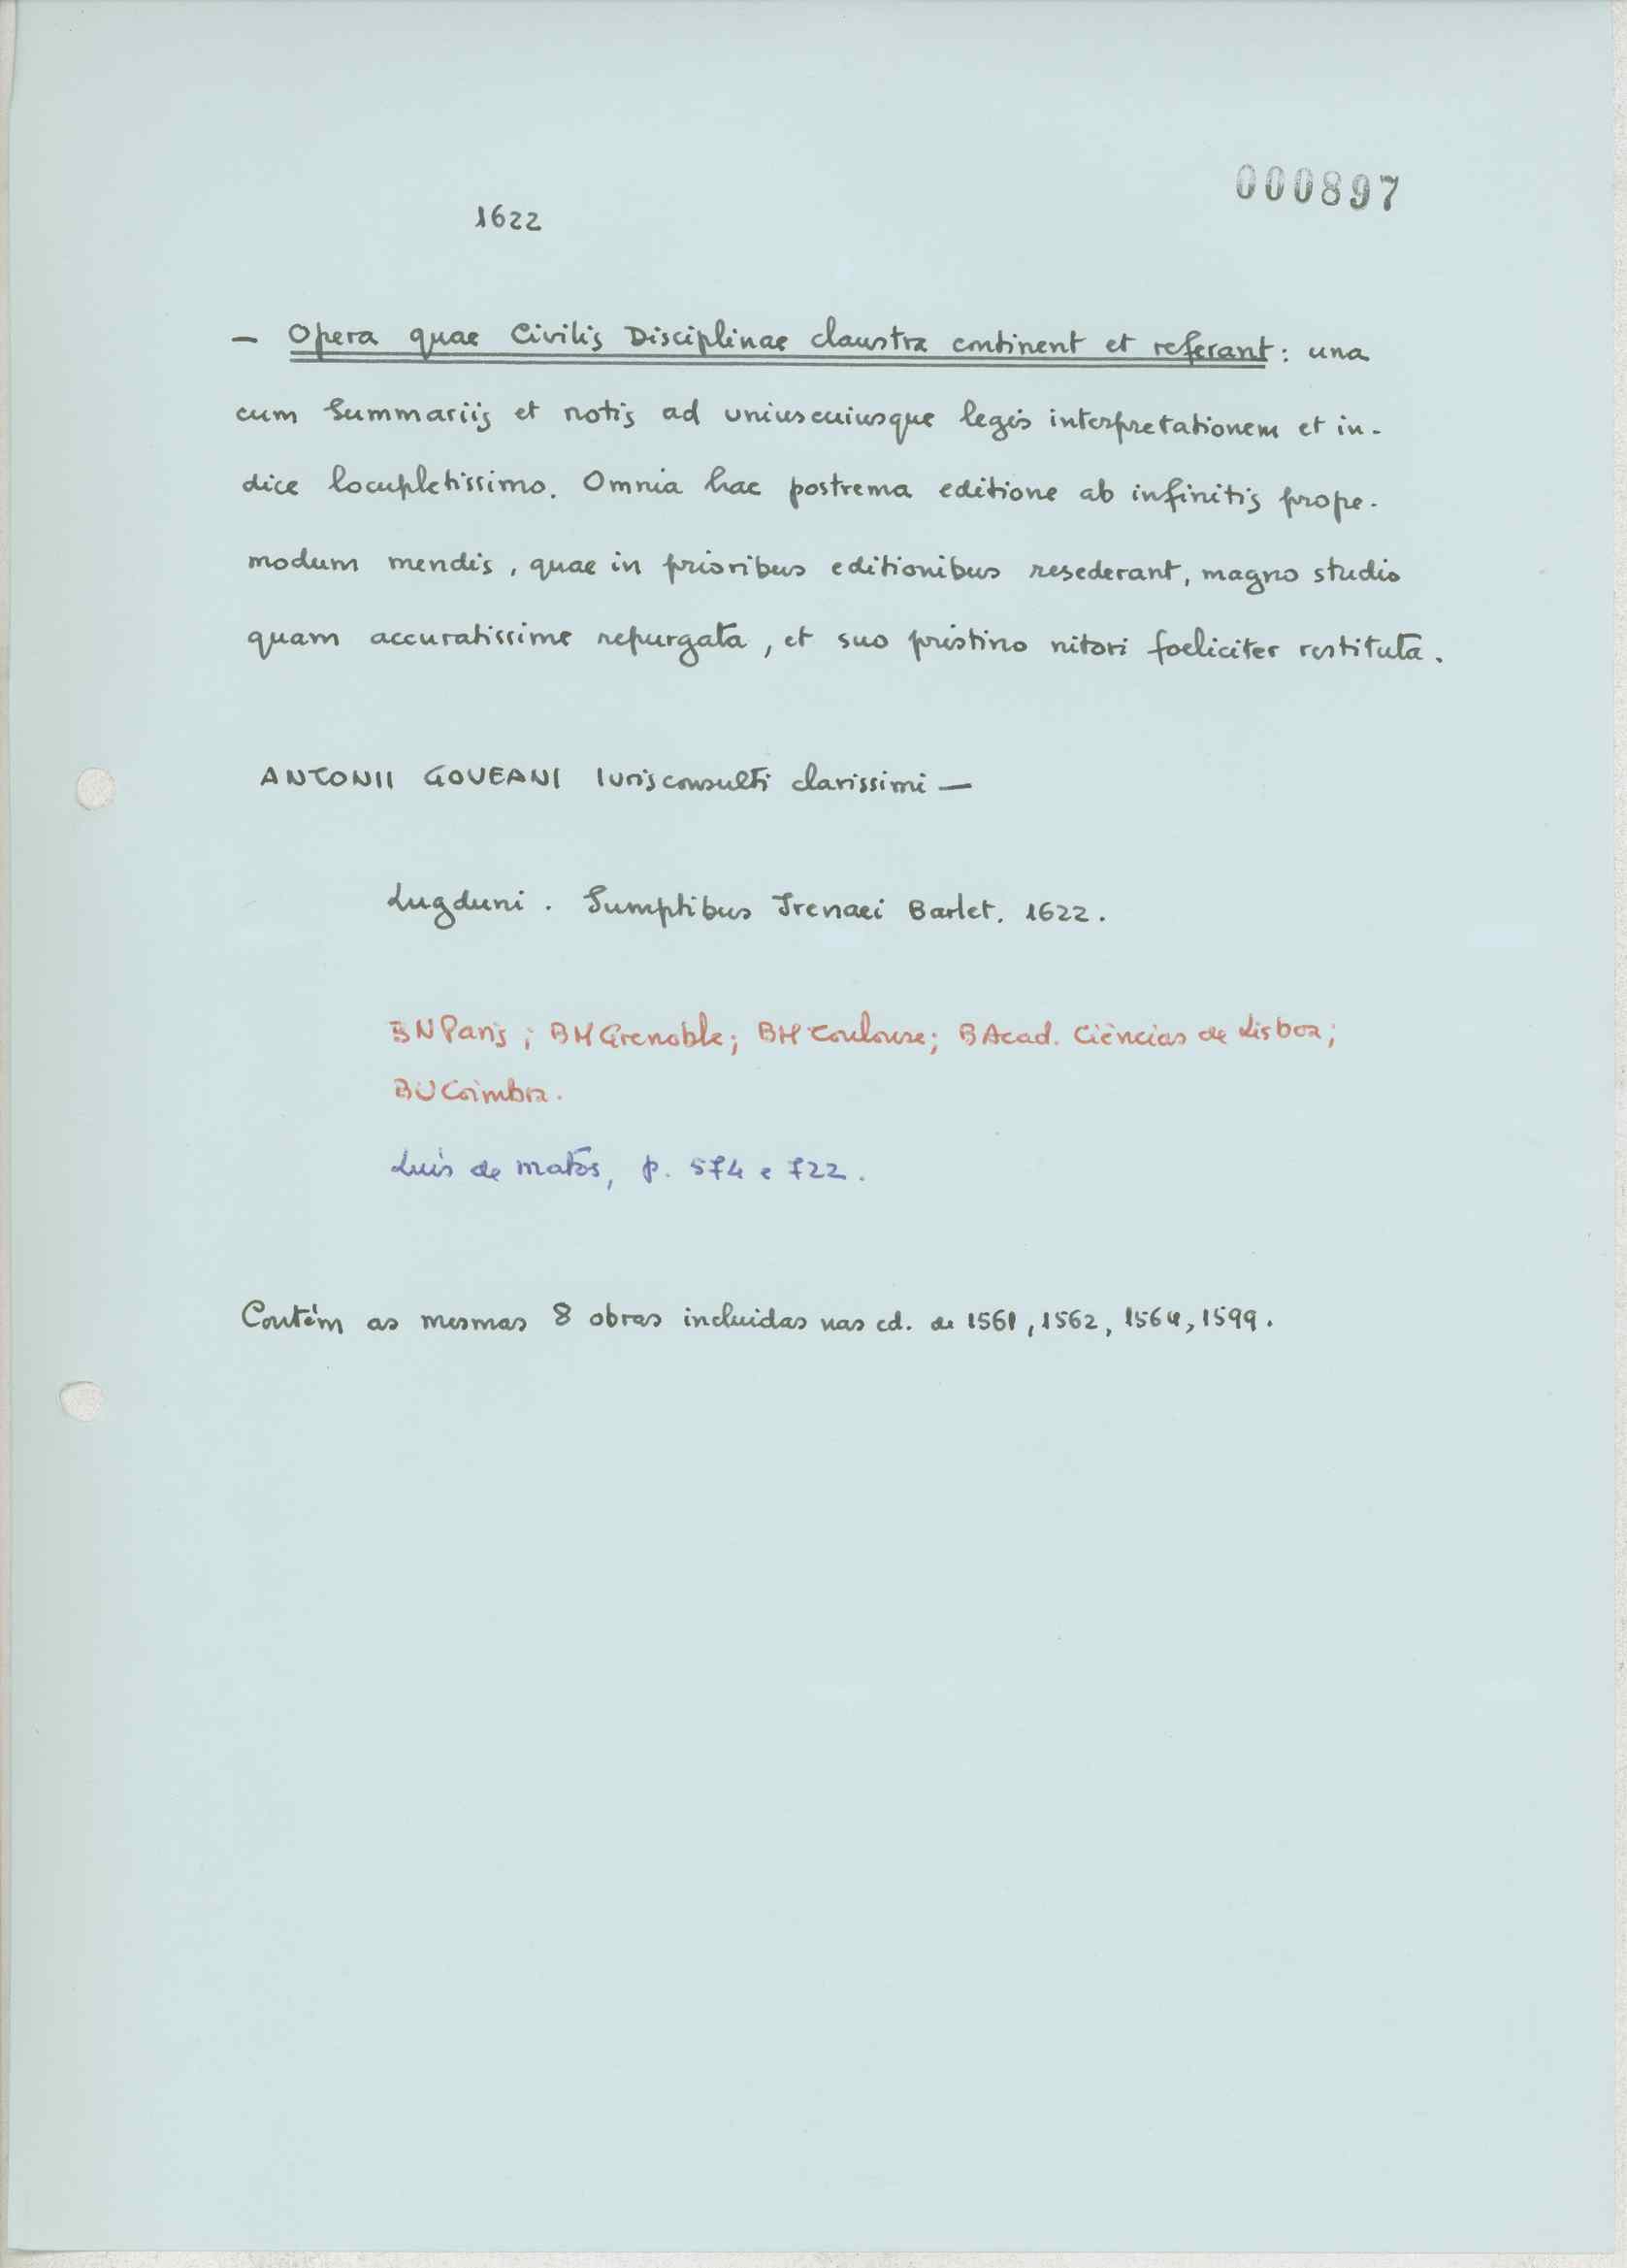 000897
1622
— Opera quae Civilis Disciplinae claustra continent et referant: una
cum Summariis et notis ad uniuscuiusque legis interpretationem et in-
dice locupletissimo. Omnia hac postrema editione ab infinitis prope-
modum mendis, quae in prioribus editionibus resederant, magno studio
quam accuratissime repurgata, et suo pristino nitori foeliciter restituta.
ANTONII GOVEANI Iurisconsulti clarissimi —
Lugduni. Sumptibus Irenaei Barlet. 1622.
BN Paris; BM Grenoble; BM Toulouse; B Acad. Ciências de Lisboa;
BU Coimbra.
Luís de Matos, p. 574 e 722.
Contém as mesmas 8 obras incluidas nas ed. de 1561, 1562, 1564, 1599.